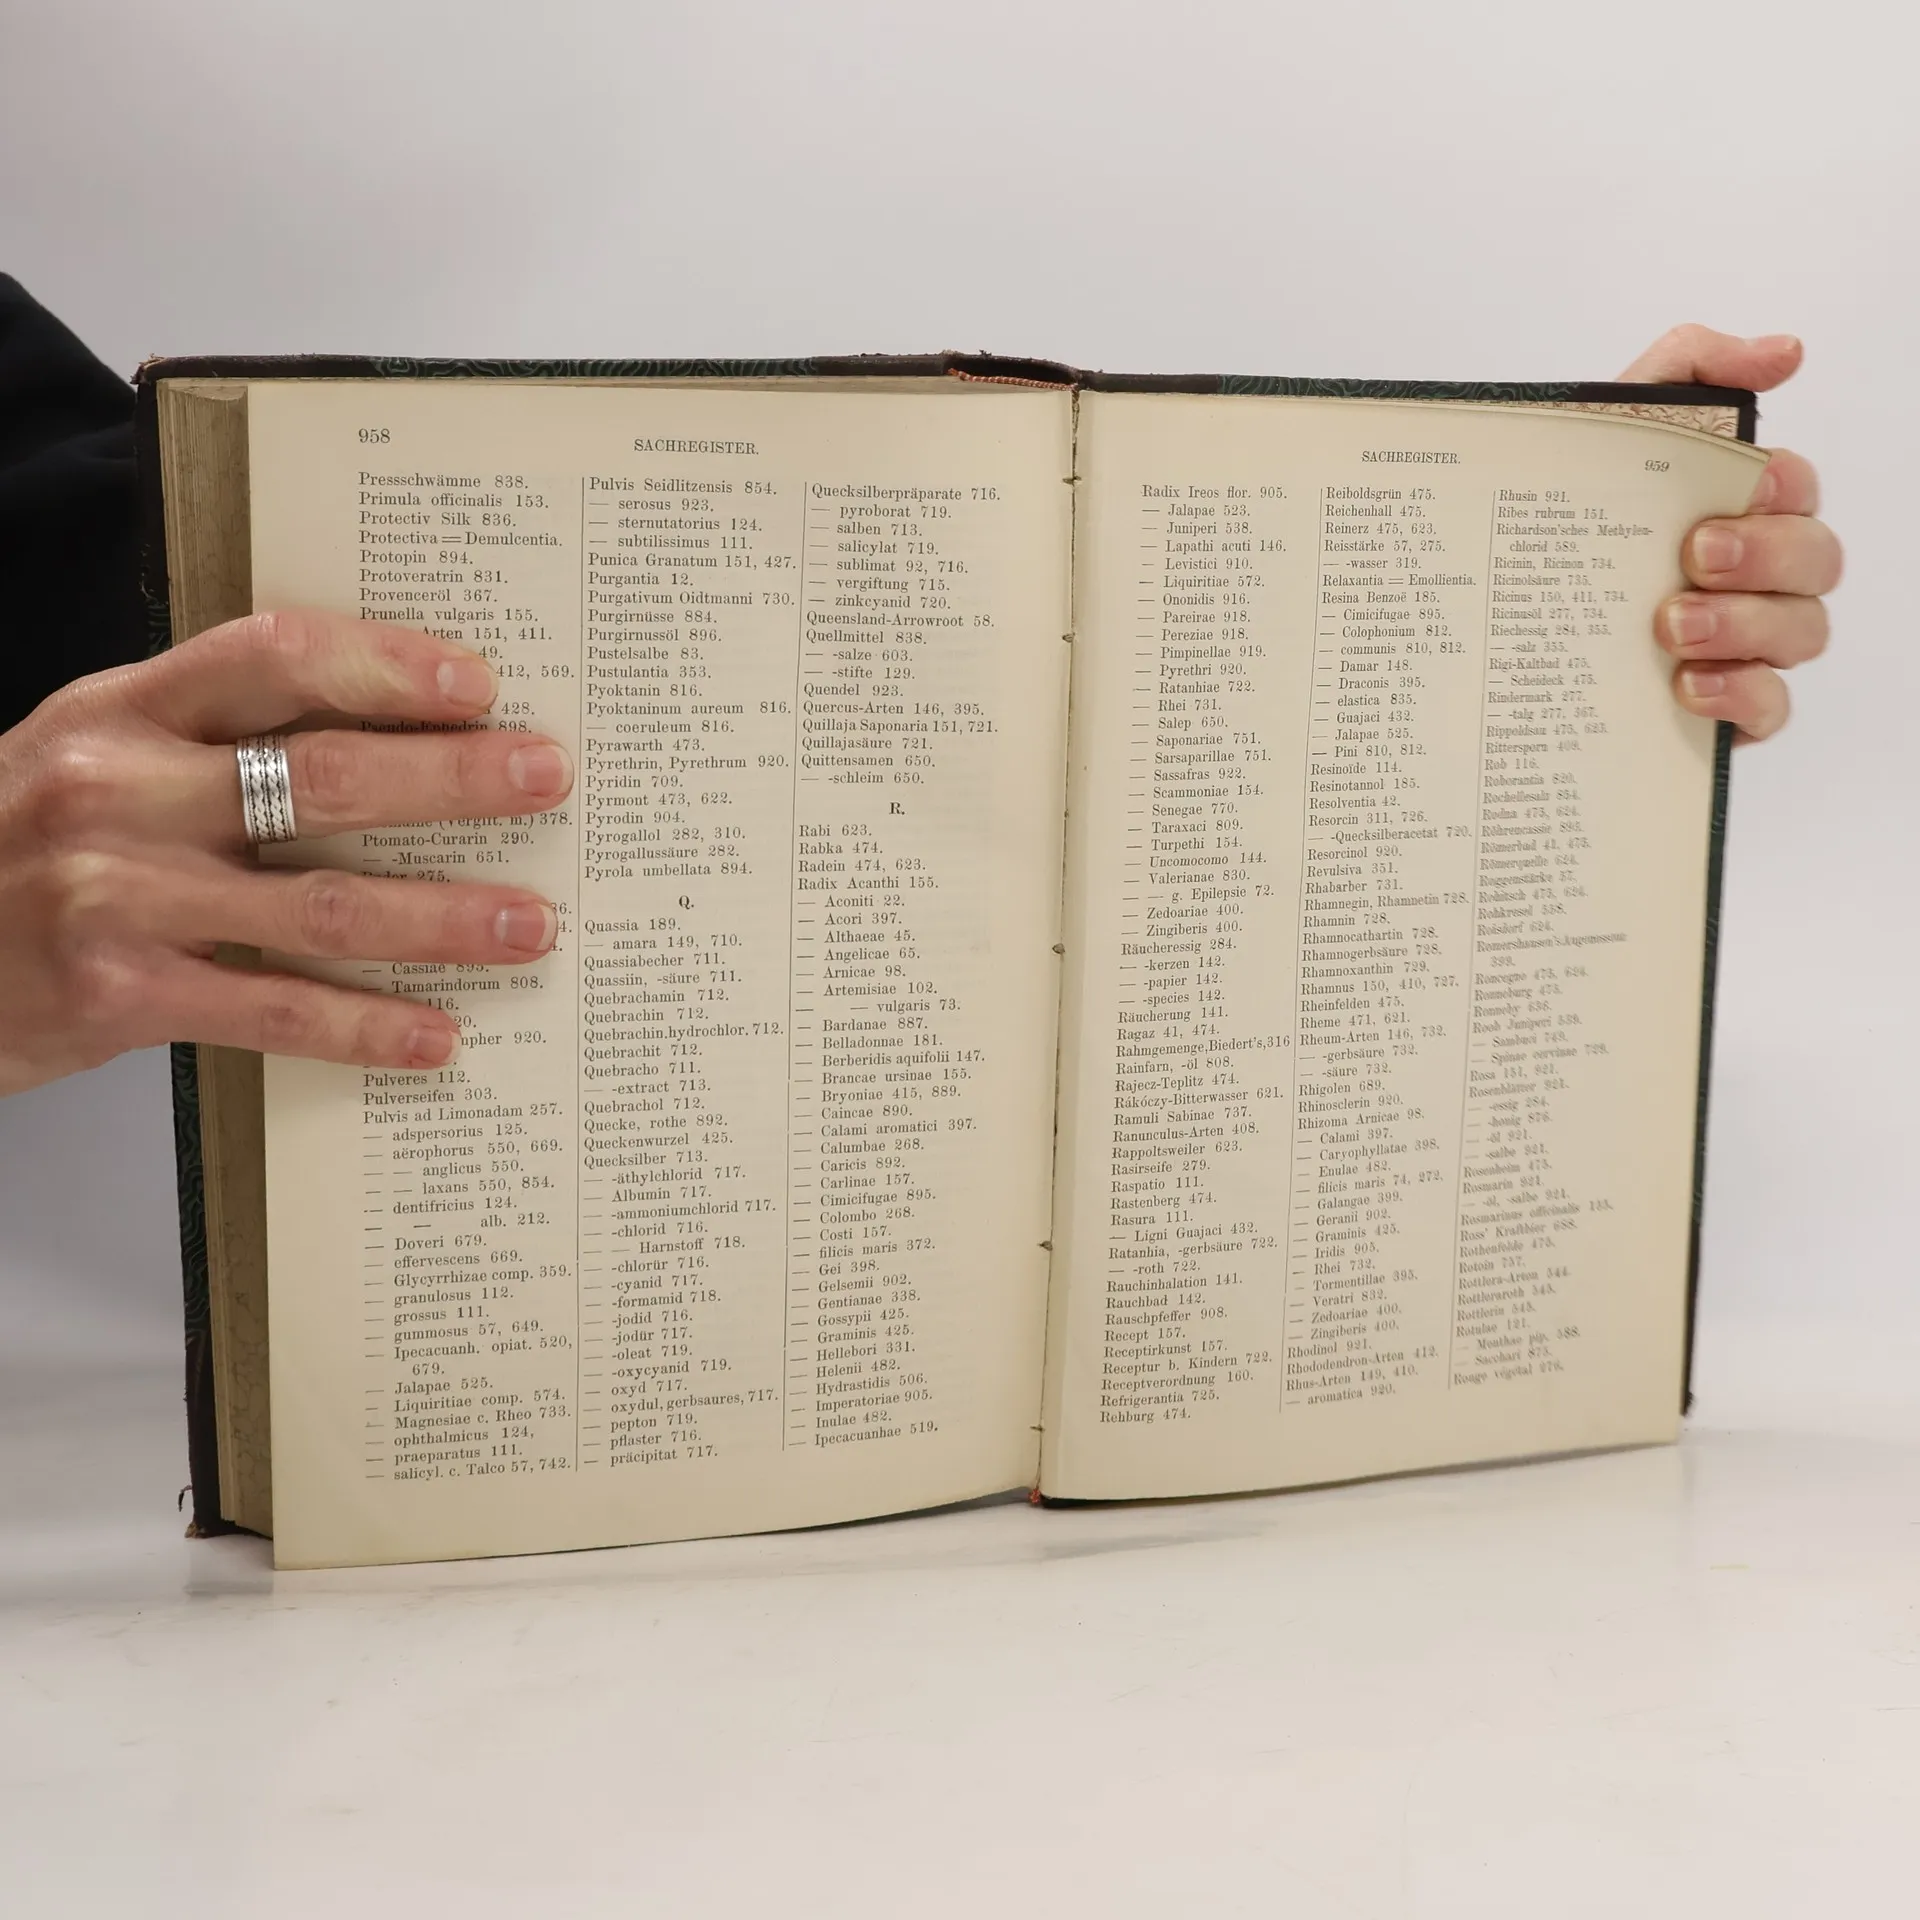 958
SACHREGISTER.
Pressschwämme 838.
Primula officinalis 153.
Protectiv Silk 836.
Protectiva = Demulcentia.
Protopin 894.
Protoveratrin 831.
Provenceröl 367.
Prunella vulgaris 155.
Arten 151, 411.
49.
412, 569.
428.
Pseudo-Ephedrin 898.
(Vergift. m.) 378.
Ptomato-Curarin 290.
— -Muscarin 651.
275.
36.
4.
— Cassiae 895.
— Tamarindorum 808.
116.
20.
920.
Pulveres 112.
Pulverseifen 303.
Pulvis ad Limonadam 257.
— adspersorius 125.
— aërophorus 550, 669.
— — anglicus 550.
— — laxans 550, 854.
— dentifricius 124.
— — alb. 212.
— Doveri 679.
— effervescens 669.
— Glycyrrhizae comp. 359.
— granulosus 112.
— grossus 111.
— gummosus 57, 649.
— Ipecacuanh. opiat. 520,
679.
— Jalapae 525.
— Liquiritiae comp. 574.
— Magnesiae c. Rheo 733.
— ophthalmicus 124,
— praeparatus 111.
— salicyl. c. Talco 57, 742.
Pulvis Seidlitzensis 854.
— serosus 923.
— sternutatorius 124.
— subtilissimus 111.
Punica Granatum 151, 427.
Purgantia 12.
Purgativum Oidtmanni 730.
Purgirnüsse 884.
Purgirnussöl 896.
Pustelsalbe 83.
Pustulantia 353.
Pyoktanin 816.
Pyoktaninum aureum 816.
— coeruleum 816.
Pyrawarth 473.
Pyrethrin, Pyrethrum 920.
Pyridin 709.
Pyrmont 473, 622.
Pyrodin 904.
Pyrogallol 282, 310.
Pyrogallussäure 282.
Pyrola umbellata 894.
Q.
Quassia 189.
— amara 149, 710.
Quassiabecher 711.
Quassiin, -säure 711.
Quebrachamin 712.
Quebrachin 712.
Quebrachin.hydrochlor. 712.
Quebrachit 712.
Quebracho 711.
— -extract 713.
Quebrachol 712.
Quecke, rothe 892.
Queckenwurzel 425.
Quecksilber 713.
— -äthylchlorid 717.
— Albumin 717.
— -ammoniumchlorid 717.
— -chlorid 716.
— — Harnstoff 718.
— -chlorür 716.
— -cyanid 717.
— -formamid 718.
— -jodid 716.
— -jodür 717.
— -oleat 719.
— -oxycyanid 719.
— oxyd 717.
— oxydul, gerbsaures, 717.
— pepton 719.
— pflaster 716.
— präcipitat 717.
Quecksilberpräparate 716.
— pyroborat 719.
— salben 713.
— salicylat 719.
— sublimat 92, 716.
— vergiftung 715.
— zinkcyanid 720.
Queensland-Arrowroot 58.
Quellmittel 838.
— -salze 603.
— -stifte 129.
Quendel 923.
Quercus-Arten 146, 395.
Quillaja Saponaria 151, 721.
Quillajasäure 721.
Quittensamen 650.
— -schleim 650.
R.
Rabi 623.
Rabka 474.
Radein 474, 623.
Radix Acanthi 155.
— Aconiti 22.
— Acori 397.
— Althaeae 45.
— Angelicae 65.
— Arnicae 98.
— Artemisiae 102.
— — vulgaris 73.
— Bardanae 887.
— Belladonnae 181.
— Berberidis aquifolii 147.
— Brancae ursinae 155.
— Bryoniae 415, 889.
— Caincae 890.
— Calami aromatici 397.
— Calumbae 268.
— Caricis 892.
— Carlinae 157.
— Cimicifugae 895.
— Colombo 268.
— Costi 157.
— filicis maris 372.
— Gei 398.
— Gelsemii 902.
— Gentianae 338.
— Gossypii 425.
— Graminis 425.
— Hellebori 331.
— Helenii 482.
— Hydrastidis 506.
— Imperatoriae 905.
— Inulae 482.
— Ipecacuanhae 519.
SACHREGISTER.
959
Radix Ireos flor. 905.
— Jalapae 523.
— Juniperi 538.
— Lapathi acuti 146.
— Levistici 910.
— Liquiritiae 572.
— Ononidis 916.
— Pareirae 918.
— Pereziae 918.
— Pimpinellae 919.
— Pyrethri 920.
— Ratanhiae 722.
— Rhei 731.
— Salep 650.
— Saponariae 751.
— Sarsaparillae 751.
— Sassafras 922.
— Scammoniae 154.
— Senegae 770.
— Taraxaci 809.
— Turpethi 154.
— Uncomocomo 144.
— Valerianae 830.
— — g. Epilepsie 72.
— Zedoariae 400.
— Zingiberis 400.
Räucheressig 284.
— -kerzen 142.
— -papier 142.
— -species 142.
Räucherung 141.
Ragaz 41, 474.
Rahmgemenge,Biedert's,316
Rainfarn, -öl 808.
Rajecz-Teplitz 474.
Rákóczy-Bitterwasser 621.
Ramuli Sabinae 737.
Ranunculus-Arten 408.
Rappoltsweiler 623.
Rasirseife 279.
Raspatio 111.
Rastenberg 474.
Rasura 111.
— Ligni Guajaci 432.
Ratanhia, -gerbsäure 722.
— -roth 722.
Rauchinhalation 141.
Rauchbad 142.
Rauschpfeffer 908.
Recept 157.
Receptirkunst 157.
Receptur b. Kindern 722.
Receptverordnung 160.
Refrigerantia 725.
Rehburg 474.
Reiboldsgrün 475.
Reichenhall 475.
Reinerz 475, 623.
Reisstärke 57, 275.
— -wasser 319.
Relaxantia = Emollientia.
Resina Benzoë 185.
— Cimicifugae 895.
— Colophonium 812.
— communis 810, 812.
— Damar 148.
— Draconis 395.
— elastica 835.
— Guajaci 432.
— Jalapae 525.
— Pini 810, 812.
Resinoïde 114.
Resinotannol 185.
Resolventia 42.
Resorcin 311, 726.
— -Quecksilberacetat 720.
Resorcinol 920.
Revulsiva 351.
Rhabarber 731.
Rhamnegin, Rhamnetin 728.
Rhamnin 728.
Rhamnocathartin 728.
Rhamnogerbsäure 728.
Rhamnoxanthin 729.
Rhamnus 150, 410, 727.
Rheinfelden 475.
Rheme 471, 621.
Rheum-Arten 146, 732.
— -gerbsäure 732.
— -säure 732.
Rhigolen 689.
Rhinosclerin 920.
Rhizoma Arnicae 98.
— Calami 397.
— Caryophyllatae 398.
— Enulae 482.
— filicis maris 74, 272.
— Galangae 399.
— Geranii 902.
— Graminis 425.
— Iridis 905.
— Rhei 732.
— Tormentillae 395.
— Veratri 832.
— Zedoariae 400.
— Zingiberis 400.
Rhodinol 921.
Rhododendron-Arten 412.
Rhus-Arten 149, 410.
— aromatica 920.
Rhusin 921.
Ribes rubrum 151.
Richardson'sches Methylen-
chlorid 589.
Ricinin, Ricinon 734.
Ricinolsäure 735.
Ricinus 150, 411, 734.
Ricinusöl 277, 734.
Riechessig 284, 355.
— -salz 355.
Rigi-Kaltbad 475.
— Scheideck 475.
Rindermark 277.
— -talg 277, 367.
Rippoldsau 475, 623.
Rittersporn 409.
Rob 116.
Roborantia 820.
Rochellesalz 854.
Rodna 475, 624.
Röhrencassie 895.
Römerbad 41, 475.
Römerquelle 624.
Roggenstärke 57.
Rohitsch 475, 624.
Rohkresol 558.
Roisdorf 624.
Romershausen's Augenessenz
399.
Roncegno 475, 624.
Ronneburg 475.
Ronneby 636.
Roob Juniperi 539.
— Sambuci 749.
— Spinae cervinae 728.
Rosa 151, 921.
Rosenblätter 921.
— -essig 284.
— -honig 876.
— -öl 921.
— -salbe 921.
Rosenheim 475.
Rosmarin 921.
— -öl, -salbe 921.
Rosmarinus officinalis 155.
Ross' Kraftbier 688.
Rothenfelde 475.
Rotoin 757.
Rottlera-Arten 544.
Rottleraroth 545.
Rottlerin 545.
Rotulae 121.
— Menthae pip. 588.
— Sacchari 875.
Rouge végétal 276.